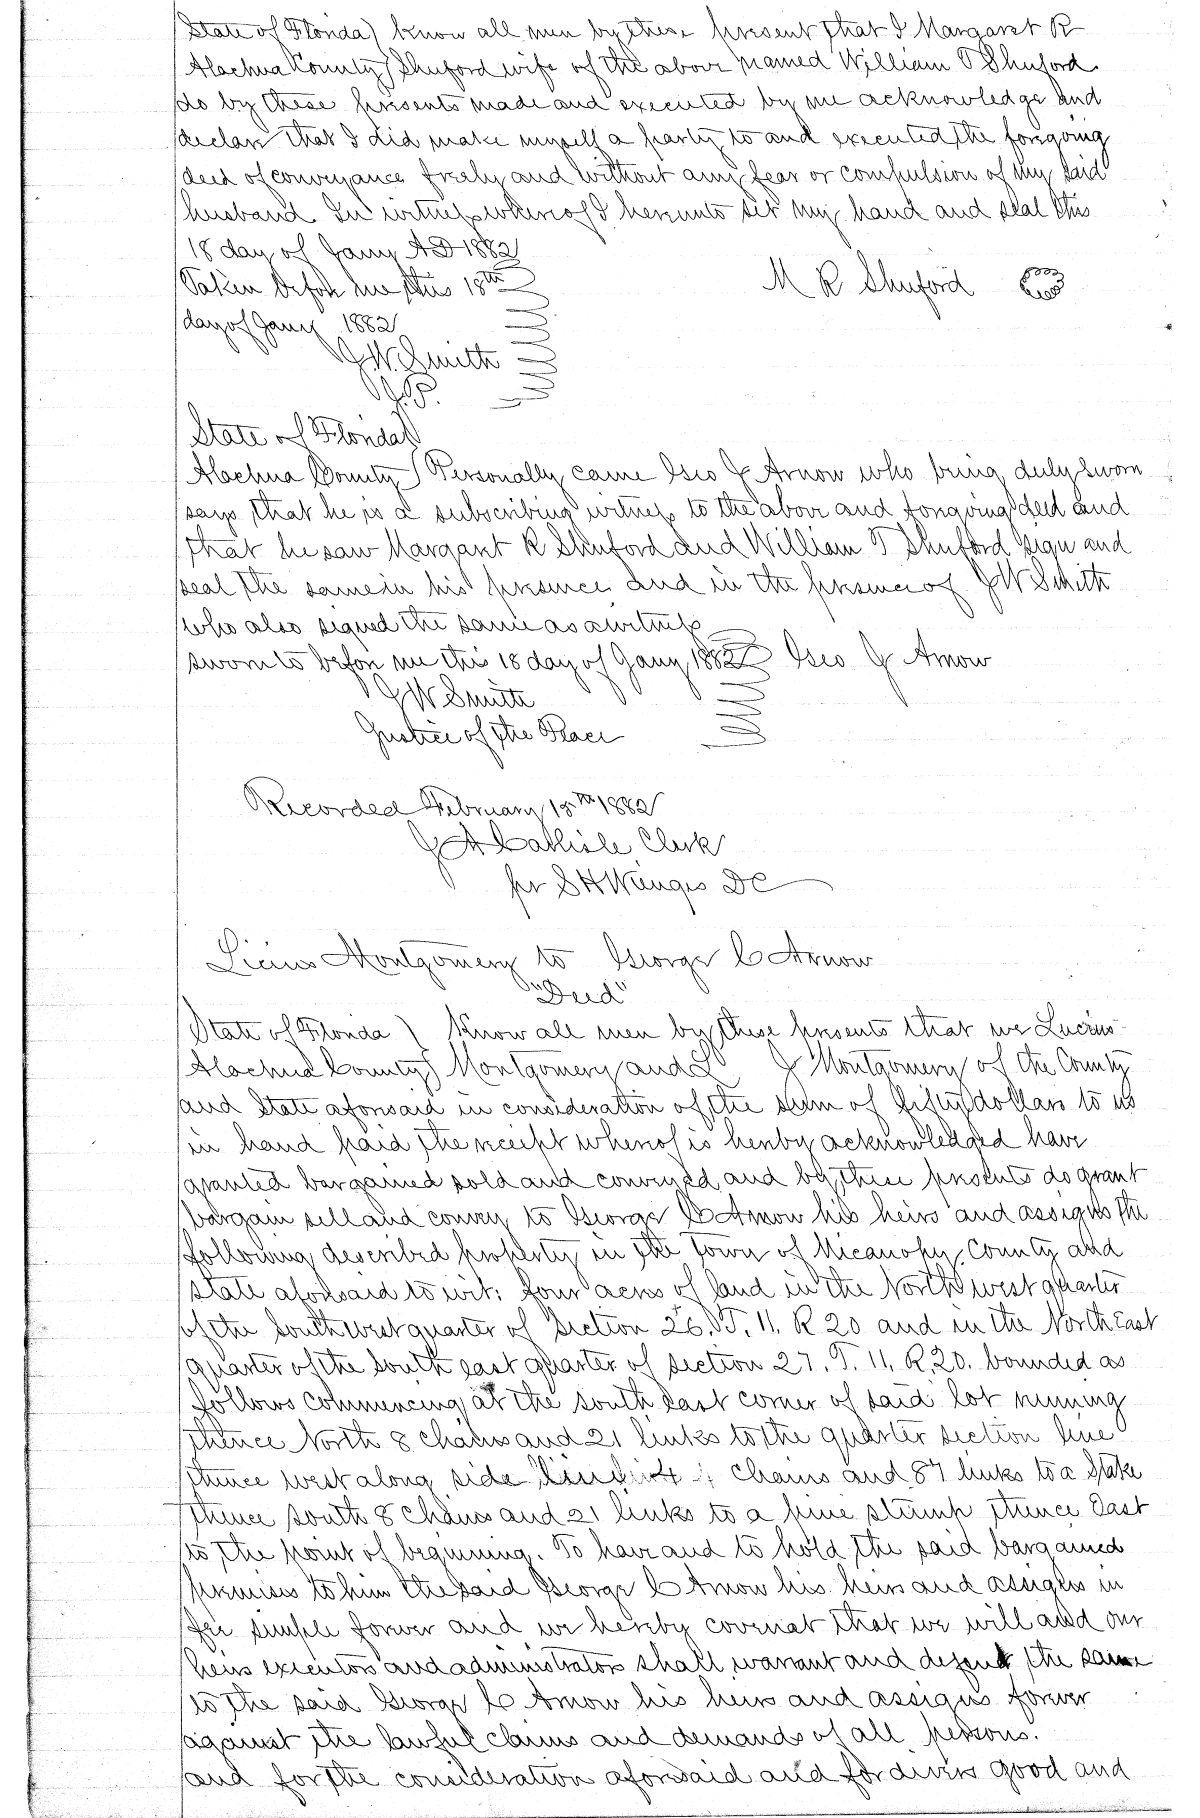 State of Florida) know all men by these present that I Margaret R
Alachua County) Shuford wife of the above named William T Shuford
do by these presents made and executed by me acknowledge and
declare that I did make myself a party to and executed the foregoing
deed of conveyance freely and without any fear or compulsion of my said
husband. In witness whereof I hereunto set my hand and seal this
18 day of Jany AD 1882
Taken before me this 18th M R Shuford
day of Jany 1882
J W. Smith
J.P.
State of Florida)
Alachua County) Personally came Geo J Arnow who being duly sworn
says that he is a subscribing witness to the above and foregoing deed and
that he saw Margaret R Shuford and William T Shuford sign and
seal the same in his presence and in the presence of J W Smith
who also signed the same as a witness
sworn to before me this 18 day of Jany 1882 Geo J Arnow
J W Smith
Justice of the Peace
Recorded February 15th 1882
J A Carlisle Clerk
pr S H Wienges DC
Licius Montgomery to George C Arnow
"Deed"
State of Florida ) Know all men by these presents that we Lucius
Alachua County) Montgomery and L J Montgomery of the County
and State aforesaid in consideration of the sum of fifty dollars to us
in hand paid the receipt whereof is hereby acknowledged have
granted bargained sold and conveyed and by these presents do grant
bargain sell and convey to George C Arnow his heirs and assigns the
following described property in the Town of Micanopy, County and
state aforesaid to wit: four acres of land in the North west quarter
of the South west quarter of Section 26. T. 11. R 20 and in the North East
quarter of the South east quarter of section 27. T. 11. R. 20. bounded as
follows commencing at the south east corner of said lot running
thence North 8 chains and 21 links to the quarter section line
thence west along side chains and 87 links to a Stake
thence south 8 chains and 21 links to a pine stump thence East
to the point of beginning. To have and to hold the said bargained
premises to him the said George C Arnow his heirs and assigns in
fee simple forever and we hereby covenat that we will and our
heirs executors and administrators shall warrant and defend the same
to the said George C Arnow his heirs and assigns forever
against the lawful claims and demands of all persons.
and for the consideration aforesaid and for divers good and